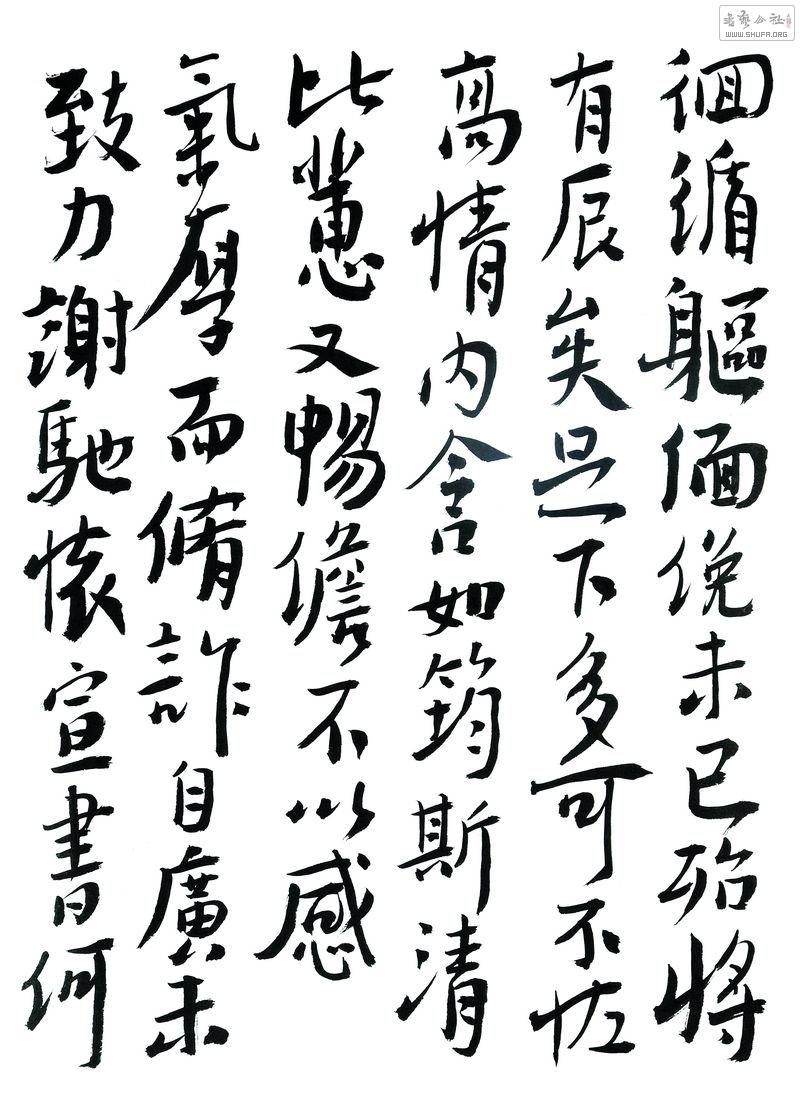 徊循軀偭俛未已殆將
有辰矣是下多可不怪
高情内含如筠斯清
比蕙又暢儋不以感
氣厚而脩詐自廣未
致力謝馳懷宣書何
WWW.SHUFA.ORG